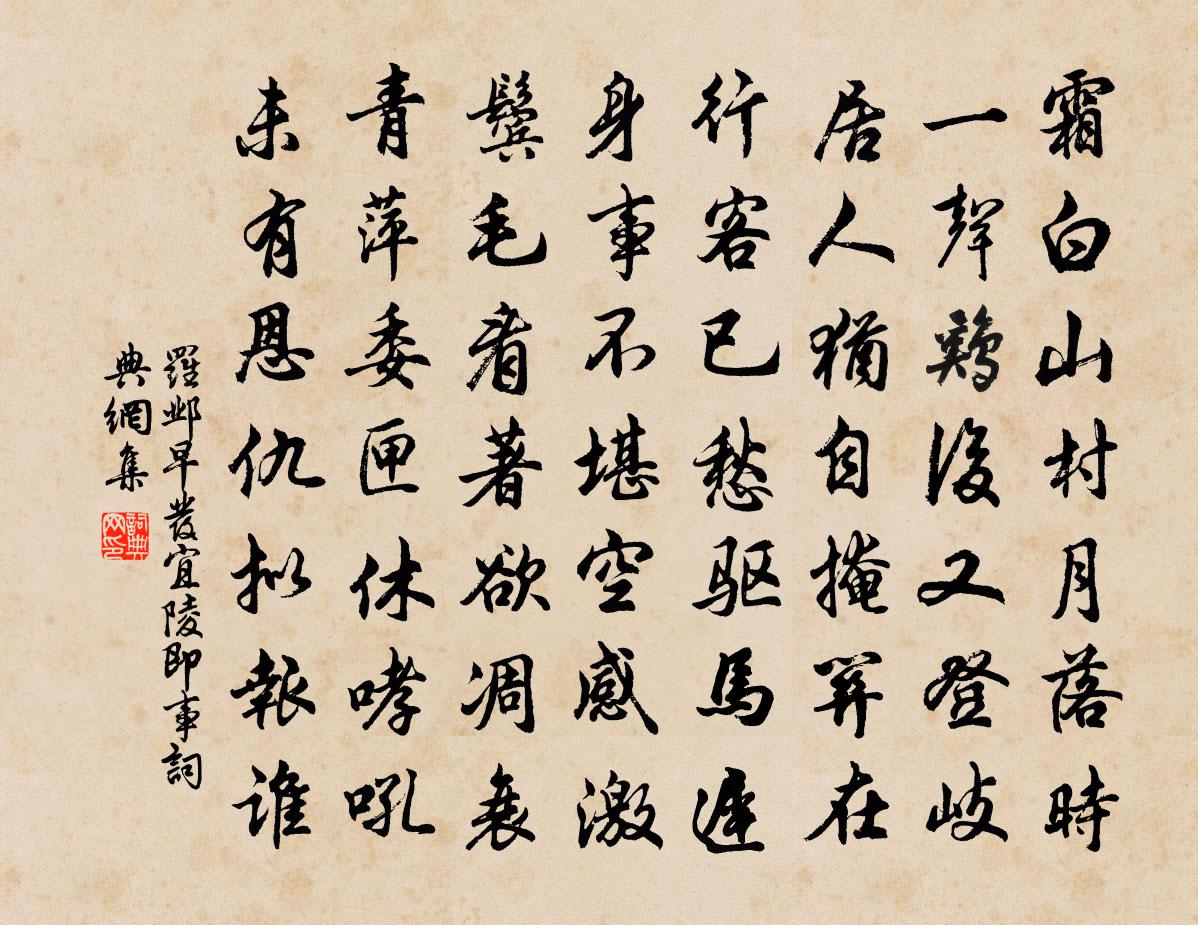 霜白山村月落時
一聲鷄後又登岐
居人猶自掩關在
行客已愁驱馬遲
身事不堪空感激
鬢毛看著欲凋衰
青萍委匣休哮吼
未有恩仇拟報誰
羅邺早發宜陵即事詞
典網集
詞典
网印